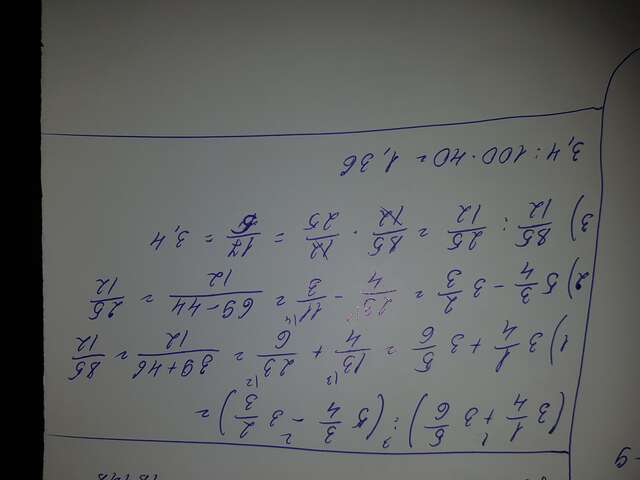 (3 1/4 + 3 5/6) : (5 3/4 - 3 2/3) =
1) 3 1/4 + 3 5/6 = 13/4 + 23/6 = 39+46/12 = 85/12
2) 5 3/4 - 3 2/3 = 23/4 - 11/3 = 69-44/12 = 25/12
3) 85/12 : 25/12 = 85/12 · 12/25 = 17/5 = 3,4
3,4 : 100 · 40 = 1,36